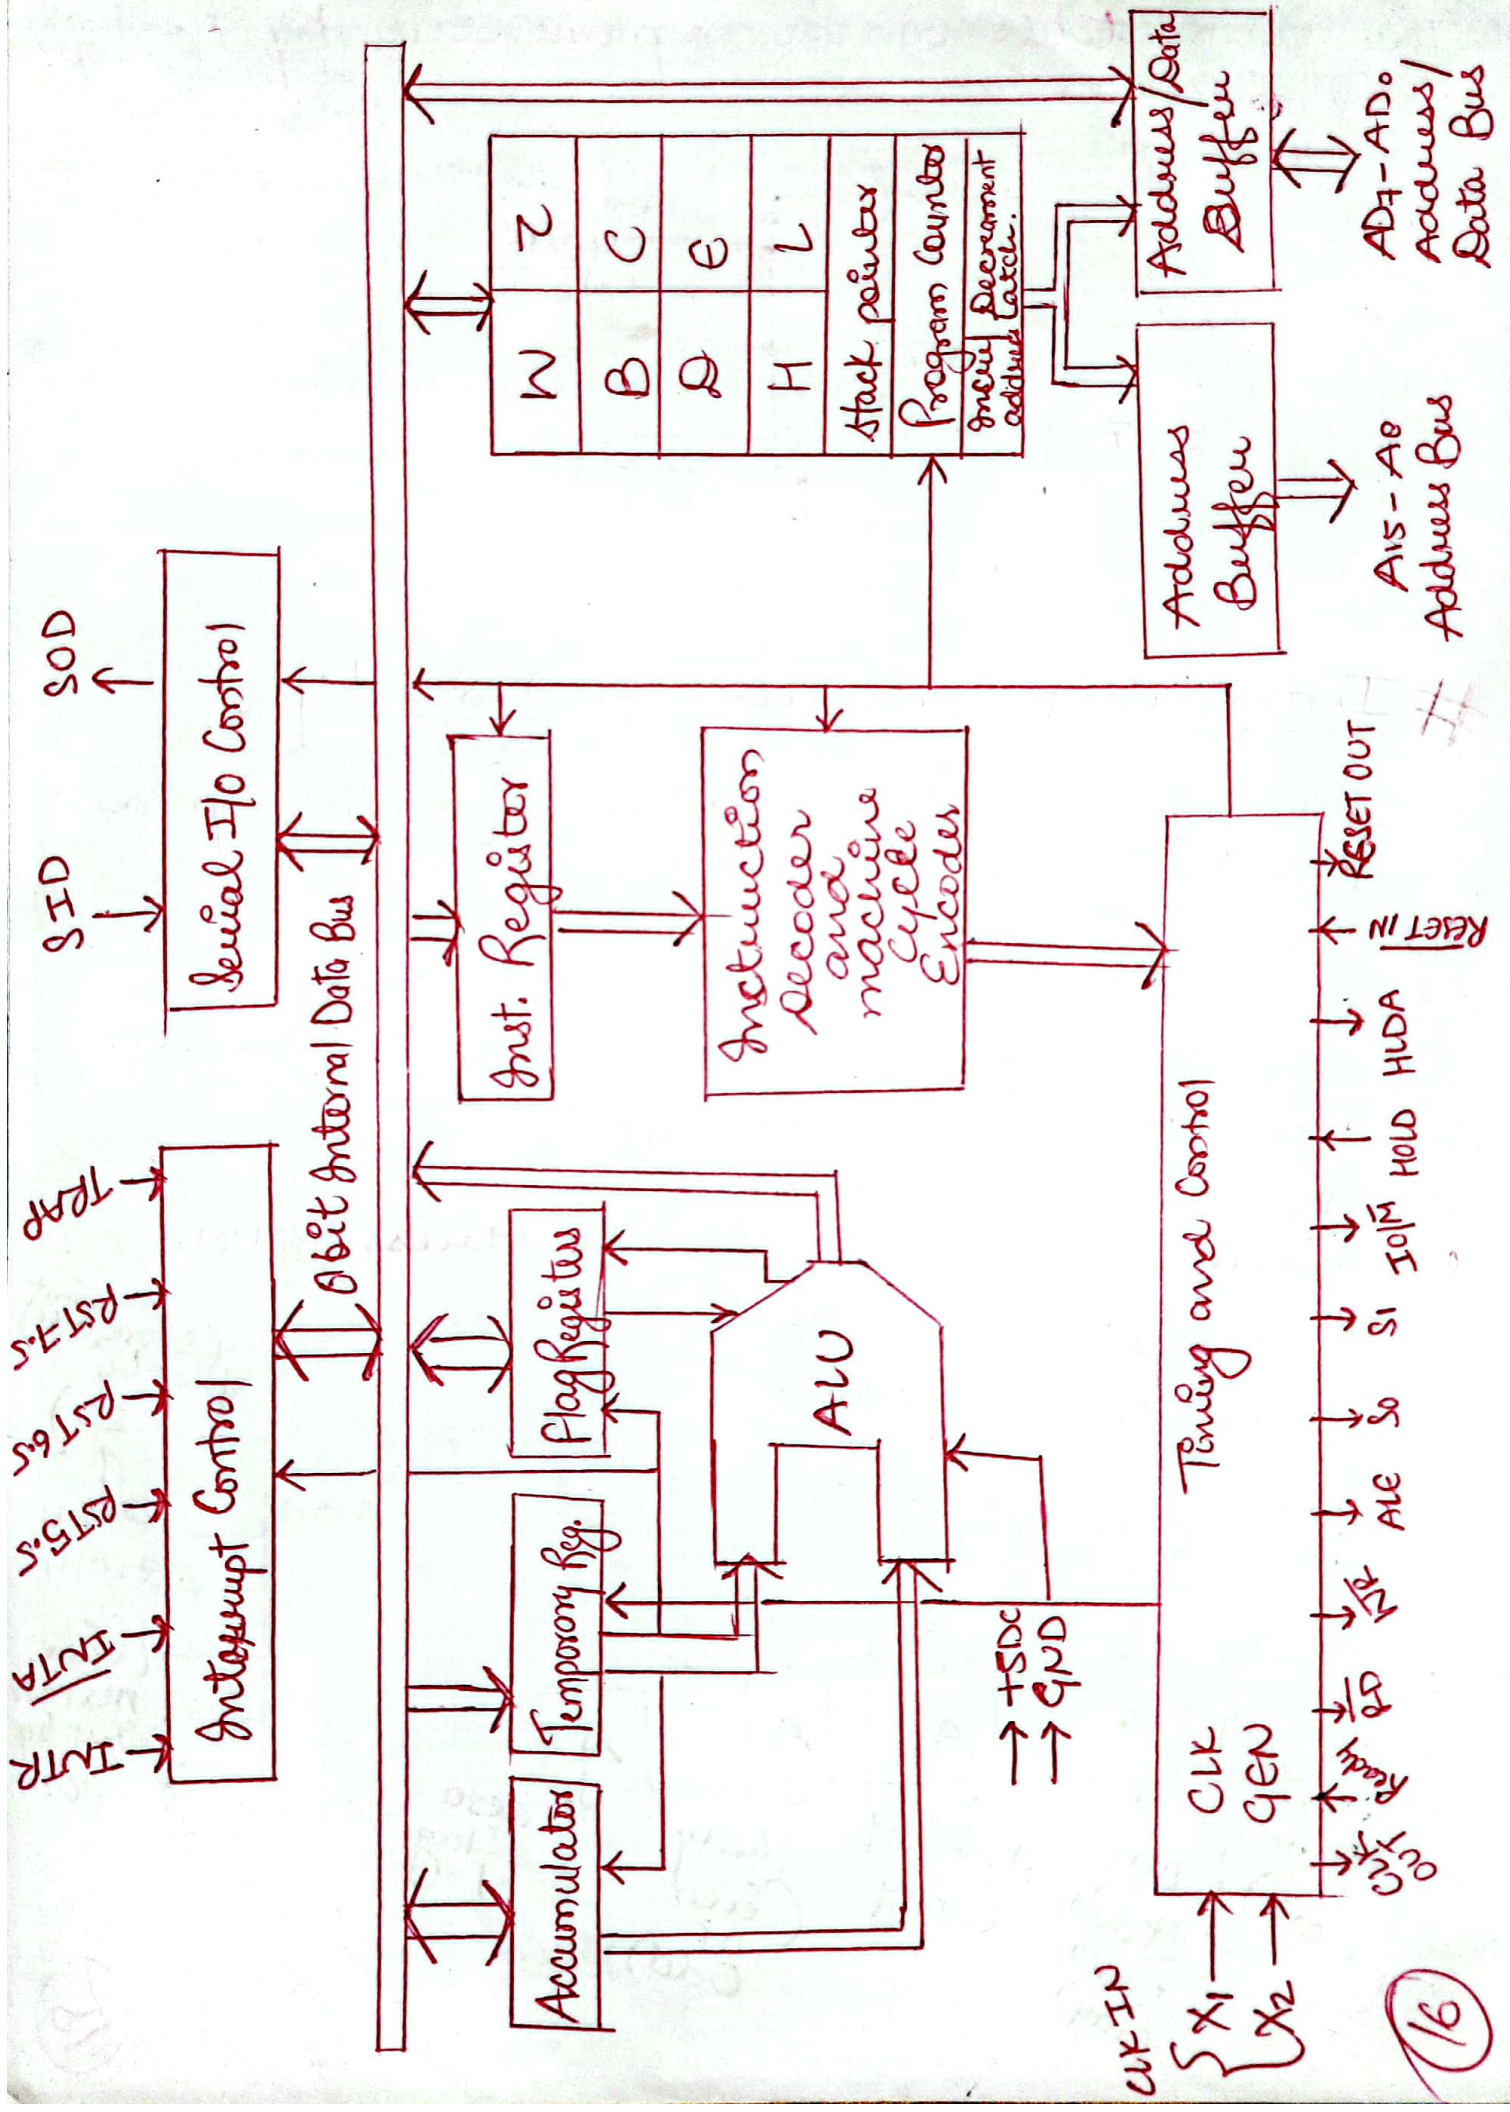 TRAP
RST 7.5
RST 6.5
RST 5.5
INTA
INTR
Interrupt Control
SID
SOD
Serial I/O Control
8 bit Internal Data Bus
Accumulator
Temporary Reg.
Flag Registers
ALU
Inst. Register
Instruction
Decoder
and
machine
Cycle
Encoder
W Z
B C
D E
H L
Stack pointer
Program Counter
Incre/ Decrement
address Latch.
Address
Buffer
Address/Data
Buffer
A15 - A8
Address Bus
AD7 - AD0
Address/
Data Bus
+5DC
GND
Timing and Control
CLK
GEN
CLK-IN
X1
X2
CLK
OUT
Ready
RD
WR
ALE
S0
S1
IO/M
HOLD
HLDA
RESET IN
RESET OUT
16